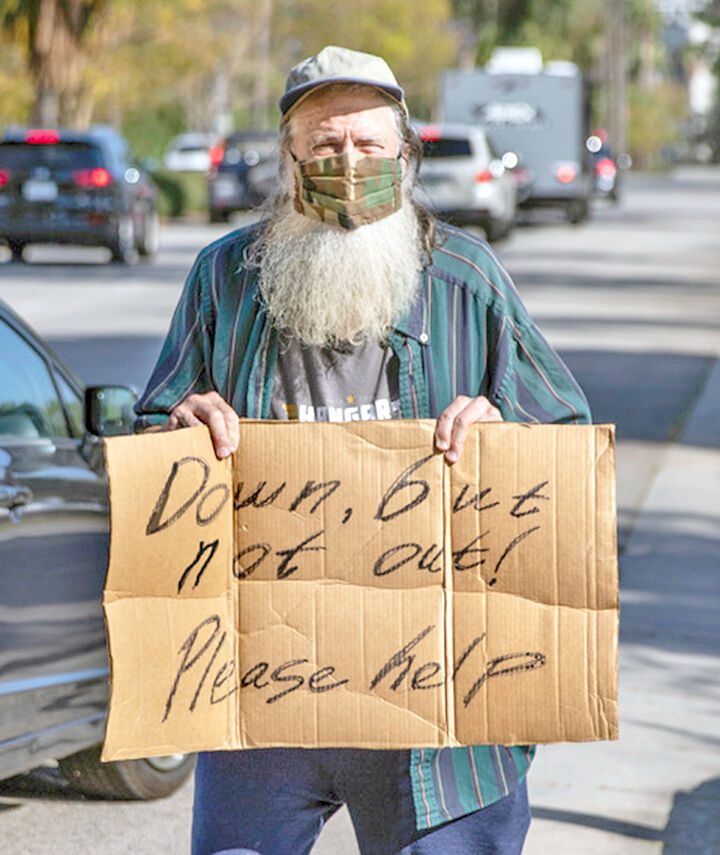 HANGER
Down, but
not out!
Please help